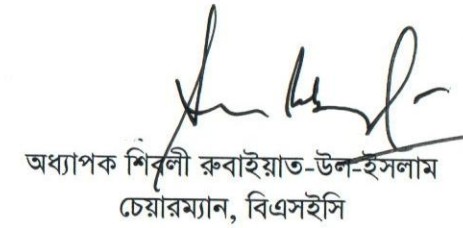 অধ্যাপক শিবলী রুবাইয়াত-উল-ইসলাম
চেয়ারম্যান, বিএসইসি